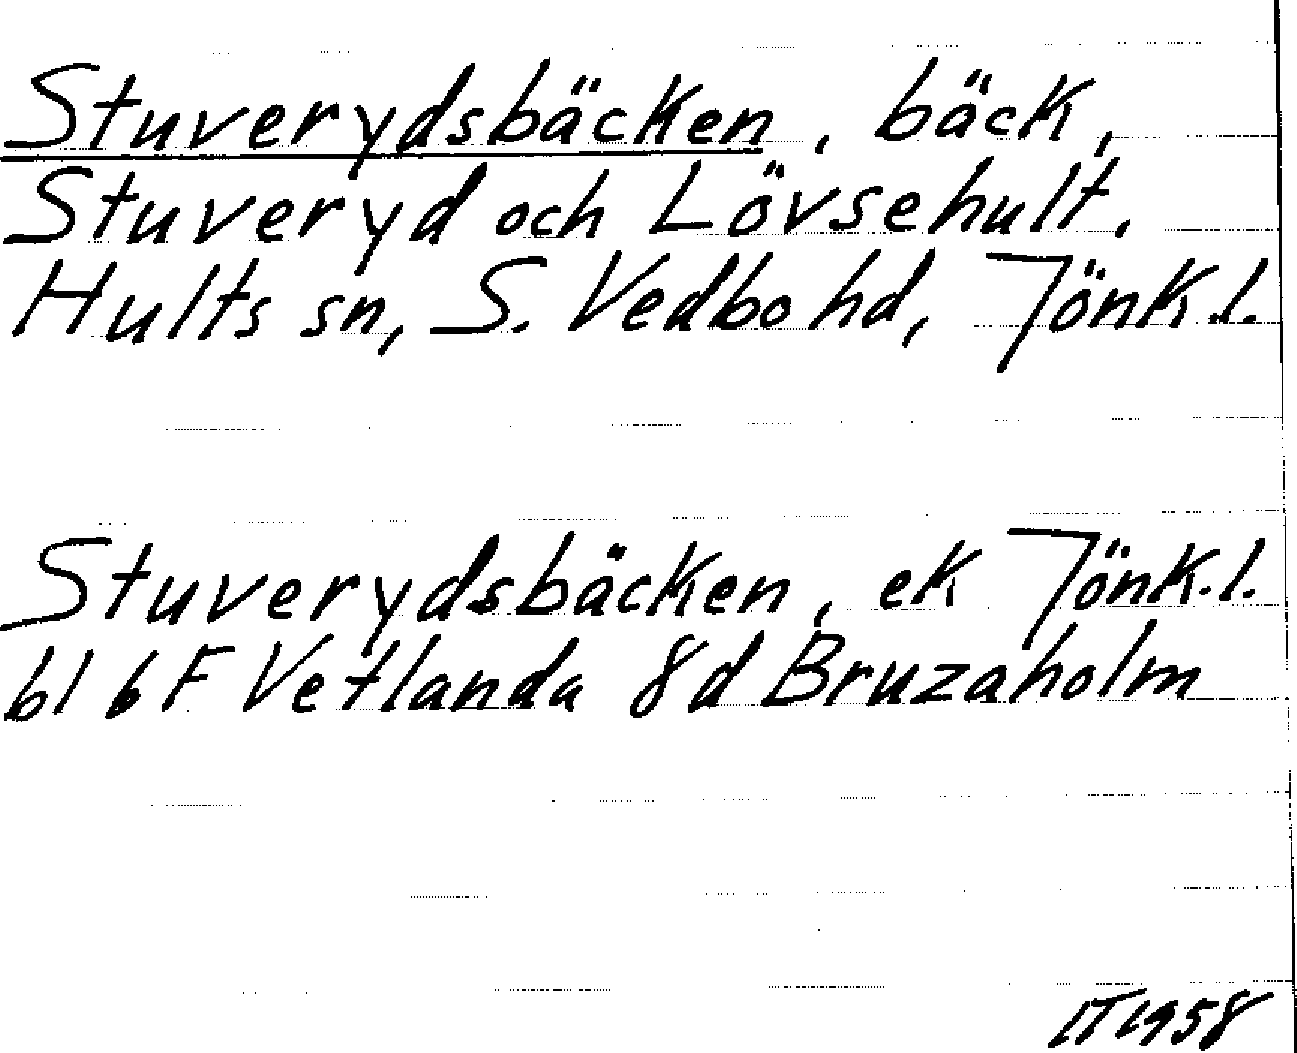 Stuverydsbäcken, bäck,
Stuveryd och Lövsehult,
Hults sn, S. Vedbo hd, Jönk.l.
Stuverydsbäcken, ek Jönk.l.
bl 6F Vetlanda 8d Bruzaholm
IT 1958